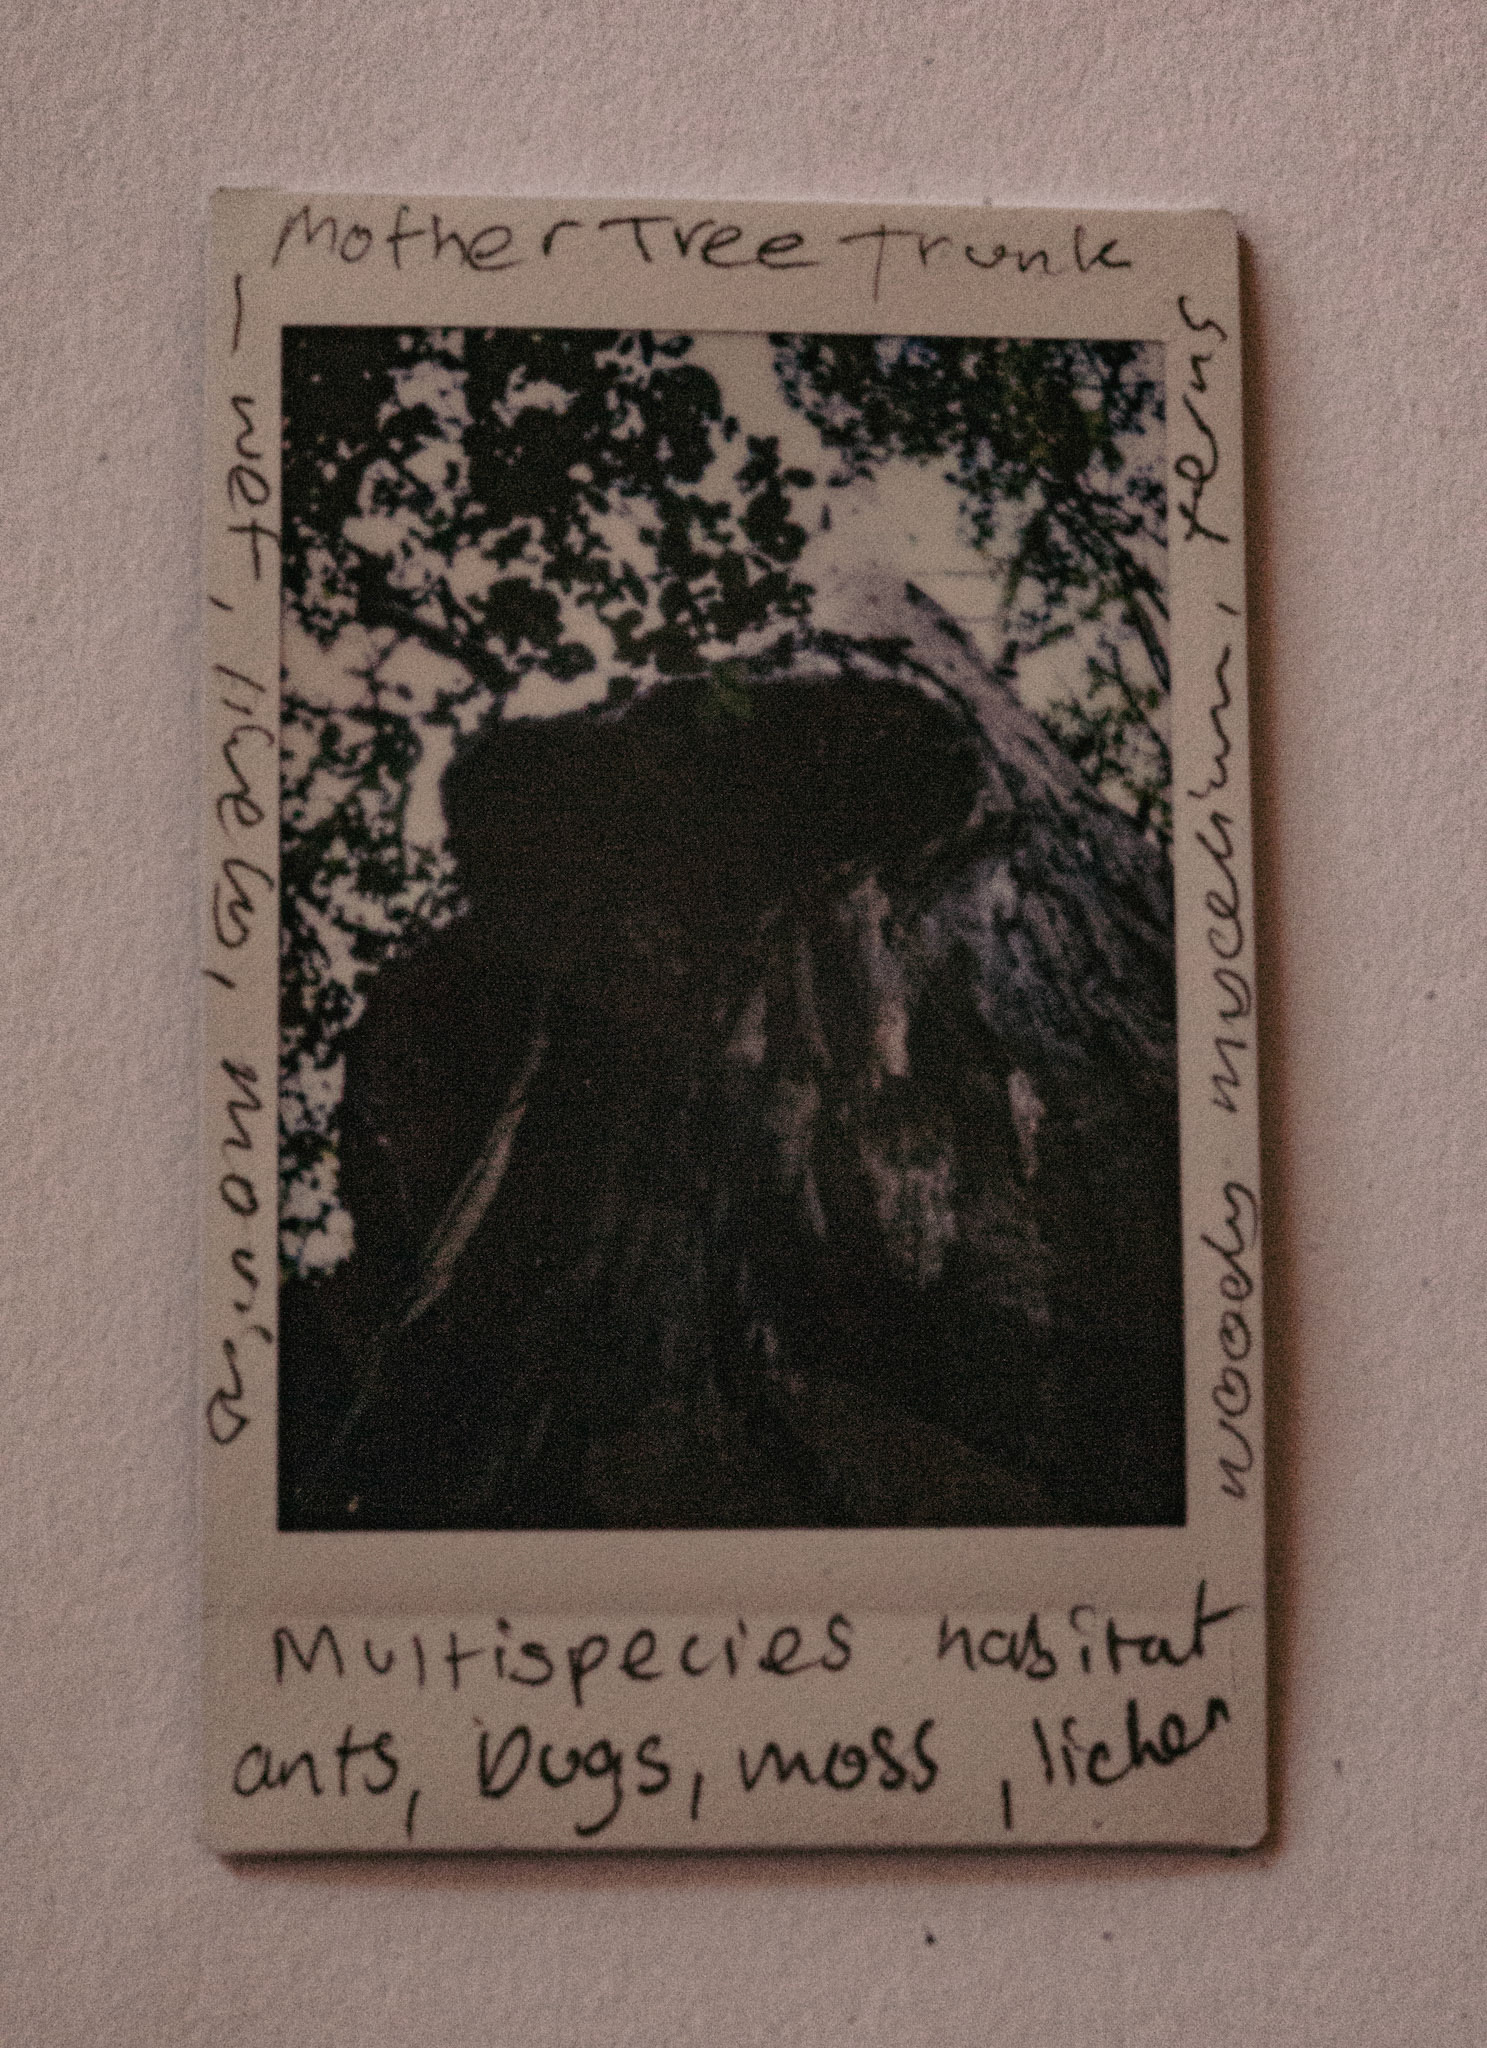 Mother Tree Trunk
– wet, lively, moving
woody mycelium, ferns
Multispecies habitat
ants, bugs, moss, lichen